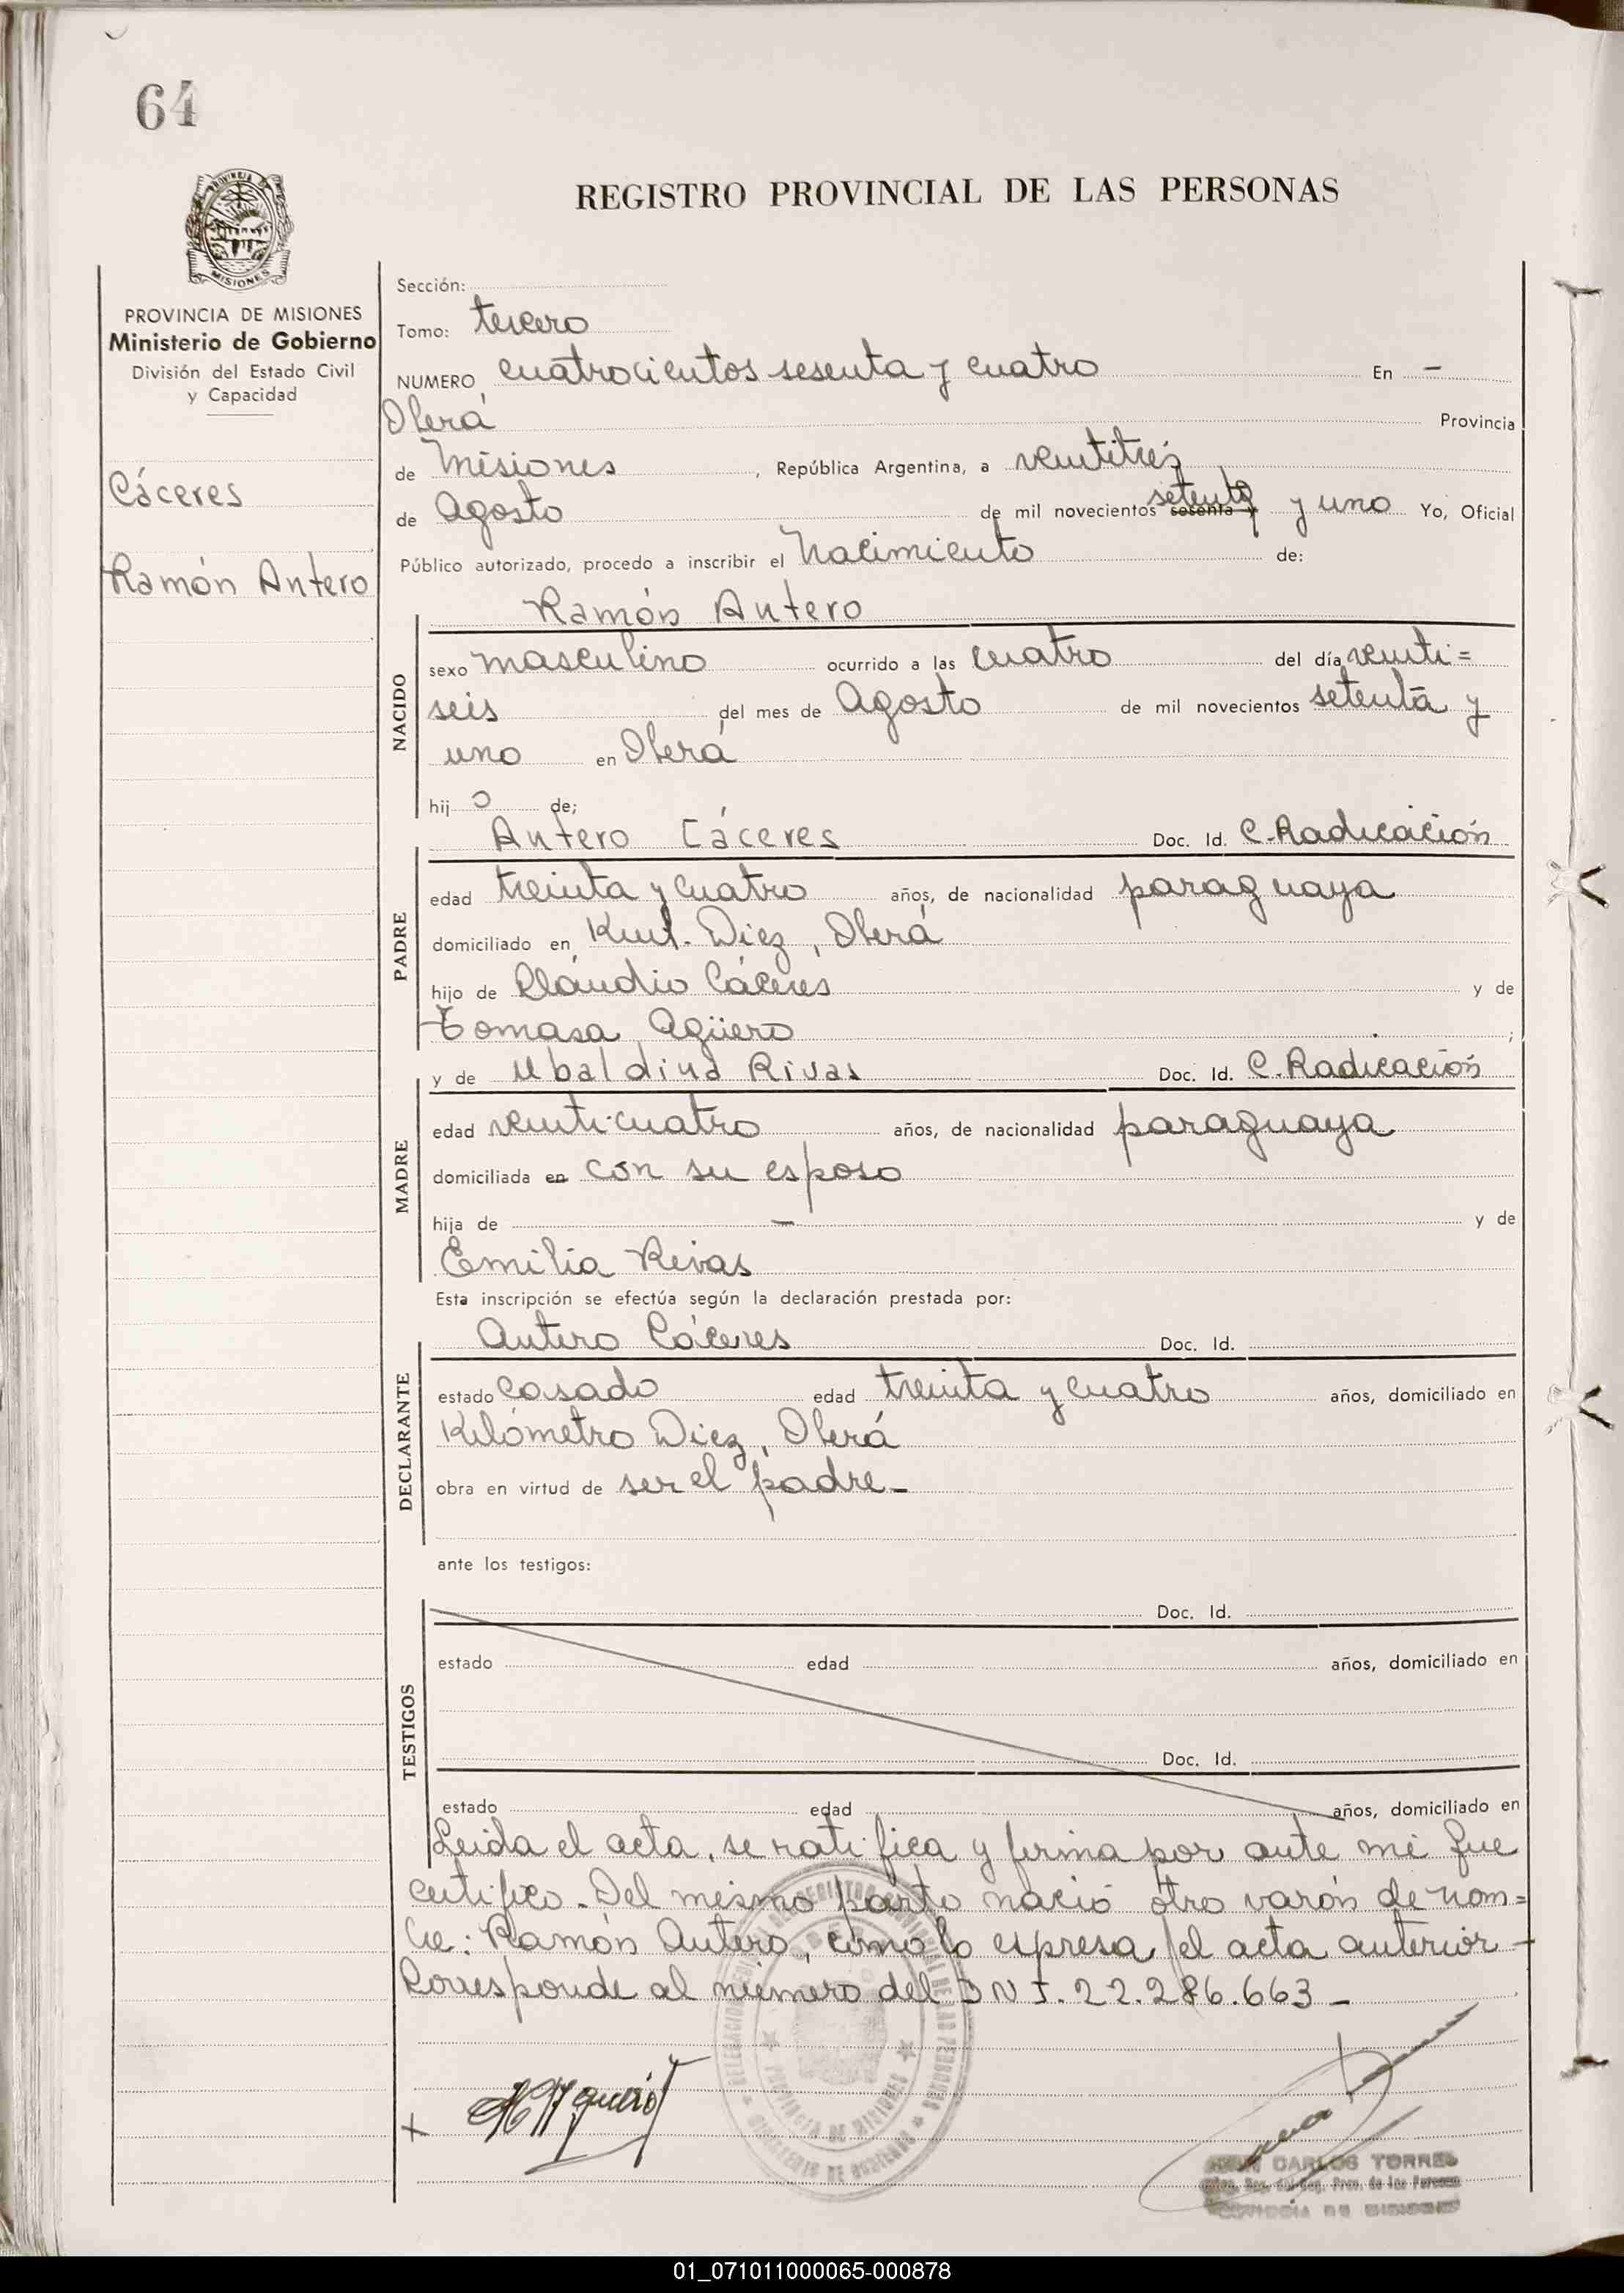 64
REGISTRO PROVINCIAL DE LAS PERSONAS
PROVINCIA DE MISIONES
Ministerio de Gobierno
División del Estado Civil
y Capacidad
Cáceres
Ramón Antero
Sección:
Tomo: tercero
NUMERO cuatrocientos sesenta y cuatro En -
Oberá Provincia
de Misiones, República Argentina, a ventitrés
de Agosto de mil novecientos setenta sesenta y y uno Yo, Oficial
Público autorizado, procedo a inscribir el Nacimiento de:
Ramón Antero
NACIDO
sexo masculino ocurrido a las cuatro del día veinti=
seis del mes de Agosto de mil novecientos setenta y
uno en Oberá
hijo de;
Antero Cáceres Doc. Id. C. Radicación
PADRE
edad treinta y cuatro años, de nacionalidad paraguaya
domiciliado en Kmt. Diez, Oberá
hijo de Cláudio Cáceres y de
Tomasa Agüero;
y de Ubaldina Rivas Doc. Id. C. Radicación
MADRE
edad veinticuatro años, de nacionalidad paraguaya
domiciliada en con su esposo
hija de - y de
Emilia Rivas
Esta inscripción se efectúa según la declaración prestada por:
Antero Cáceres Doc. Id.
DECLARANTE
estado casado edad treinta y cuatro años, domiciliado en
Kilómetro Diez, Oberá
obra en virtud de ser el padre-
ante los testigos:
Doc. Id.
TESTIGOS
estado edad años, domiciliado en
Doc. Id.
estado edad años, domiciliado en
Leida el acta, se ratifica y firma por ante mi que
certifico. Del mismo parto nació otro varón de nom=
bre: Ramón Antero, como lo espresa el acta anterior-
Corresponde al número del DNI. 22.286.663-
PROVINCIA DE MISIONES
MINISTERIO DE GOBIERNO
JUAN CARLOS TORRES
01_071011000065-000878